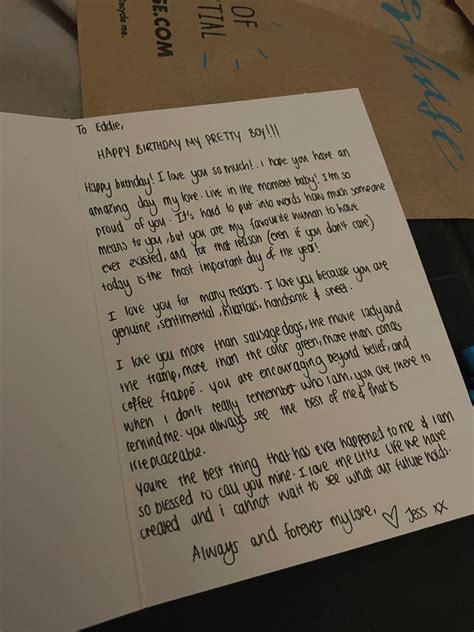 OF
TIAL
SE.COM
ecycle me.
To Eddie,
HAPPY BIRTHDAY MY PRETTY BOY!!!
Happy birthday! I love you so much!. I hope you have an
amazing day my love. Live in the moment baby! I'm so
proud of you. It's hard to put into words how much someone
means to you, but you are my favourite human to have
ever existed, and for that reason (even if you don't care)
today is the most important day of the year!
I love you for many reasons. I love you because you are
genuine, sentimental, hilarious, handsome & sweet.
I love you more than sausage dogs, the movie lady and
the tramp, more than the color green, more than costas
coffee frappé. you are encouraging beyond belief, and
when I don't really remember who I am, you are there to
remind me. you always see the best of me & that is
irreplaceable.
you're the best thing that has ever happened to me & i am
so blessed to call you mine. I love the little life we have
created and i cannot wait to see what our future holds.
Always and forever my love, ♡ Jess xx